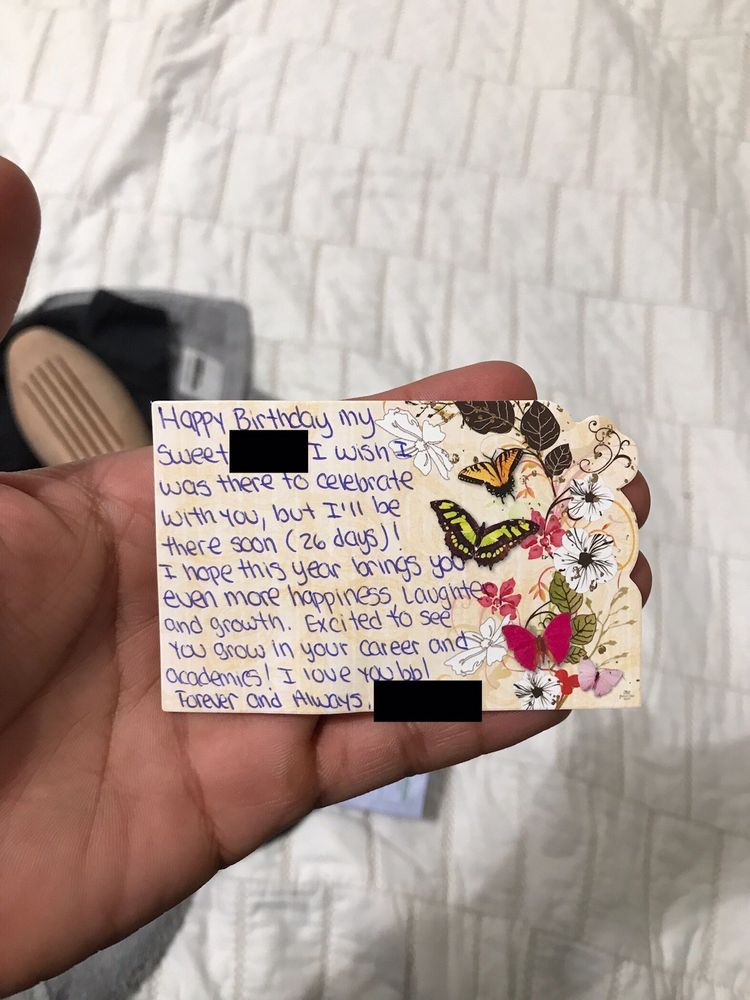 Happy Birthday my
sweet I wish I
was there to celebrate
with you, but I'll be
there soon (26 days)!
I hope this year brings you
even more happiness Laughter
and growth. Excited to see
you grow in your career and
academics! I love you bb!
Forever and Always,